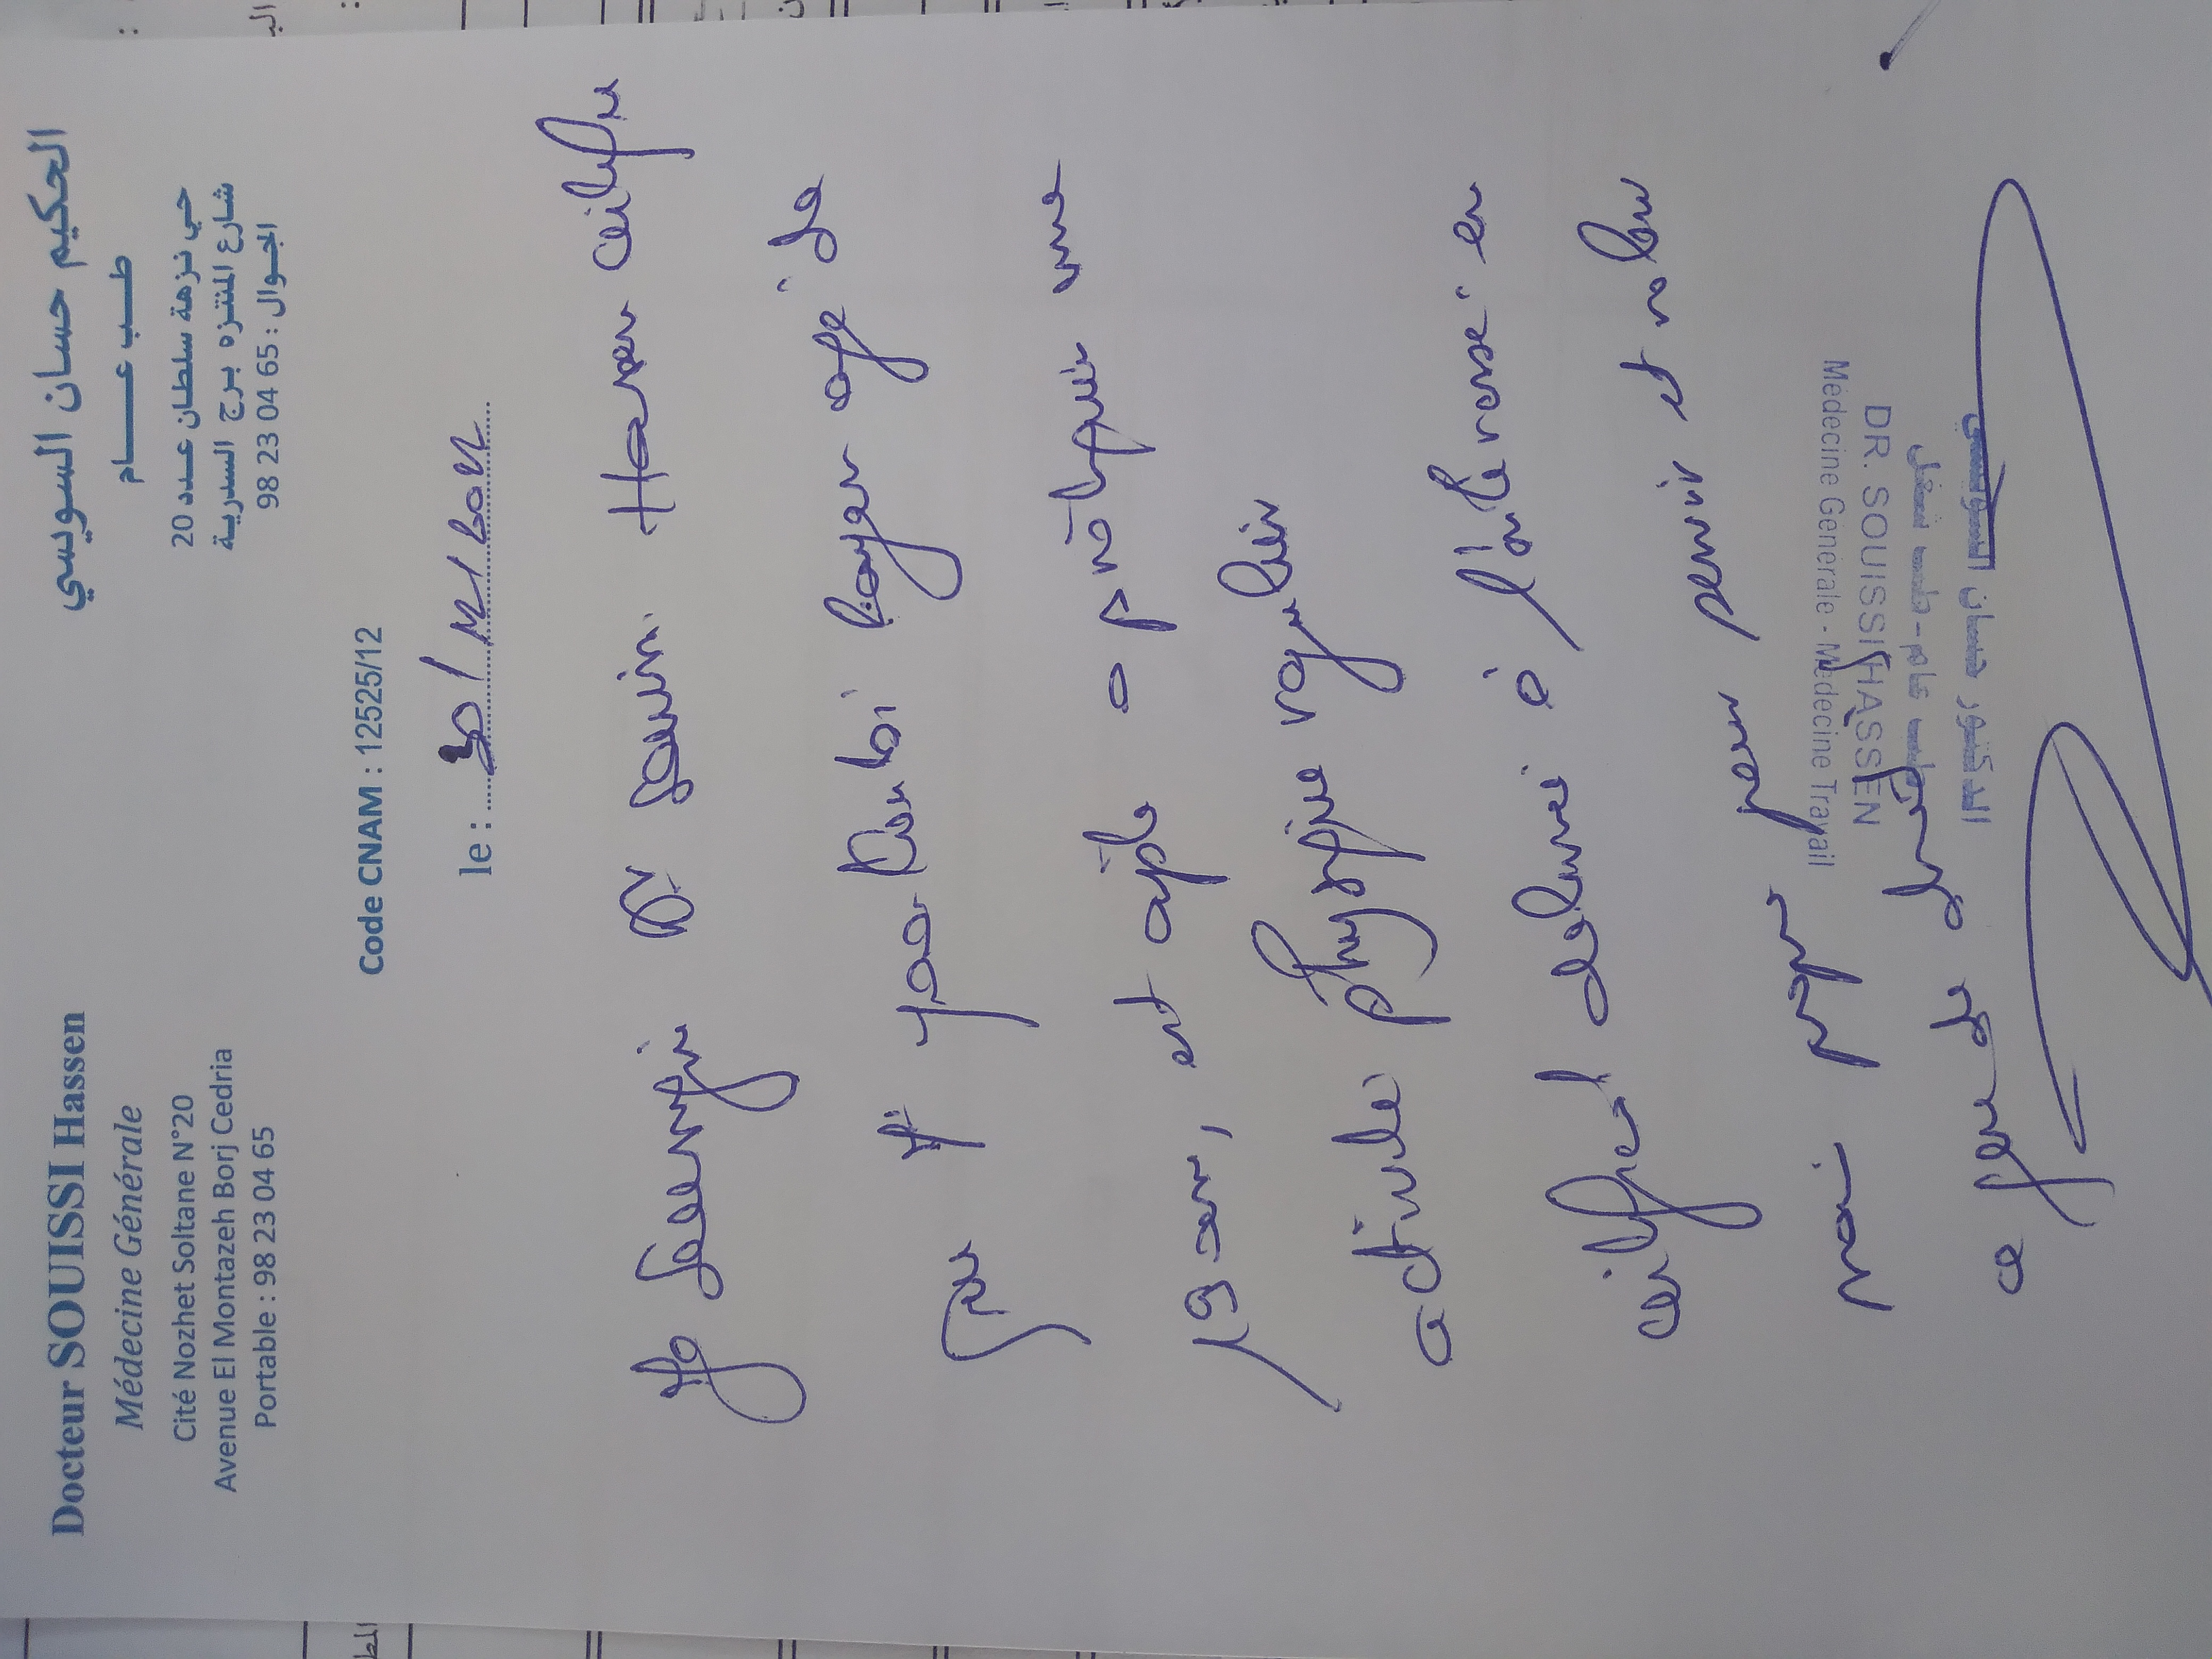 Docteur SOUISSI Hassen
Médecine Générale
Cité Nozhet Soltane N°20
Avenue El Montazeh Borj Cedria
Portable : 98 23 04 65
الحكيم حسان السويسي
طب عام
حي نزهة سلطان عدد 20
شارع المنتزه برج السدرية
الجوال : 98 23 04 65
Code CNAM : 12525/12
le :
Je soussigné Dr Souissi Hassen certifie
que Mr Rayen agé de
19 ans, est apte a pratiquer une
activité physique régulière
certificat délivré à l'intéressé en
main propre pour servir et valoir
ce que de droit
الدكتور حسان السويسي
طب عام - طب شغل
DR. SOUISSI HASSEN
Médecine Générale - Médecine Travail